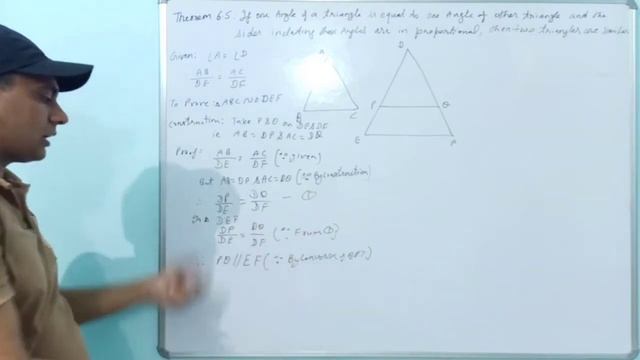 Theorem 6.5. If one Angle of a triangle is equal to one Angle of other triangle and the
sides including these Angles are in proportional, then two triangles are similar
Given: ∠A = ∠D
AB/DE = AC/DF
To Prove: △ABC ~ △DEF
Construction: Take P & Q on DE & DF
ie AB = DP & AC = DQ
Proof: AB/DE = AC/DF (∵ given)
But AB = DP & AC = DQ (∵ By Construction)
∴ DP/DE = DQ/DF — ①
In △ DEF
DP/DE = DQ/DF (∵ From ①)
∴ PQ // EF (∵ By Converse of BPT)
A
B
C
D
P
Q
E